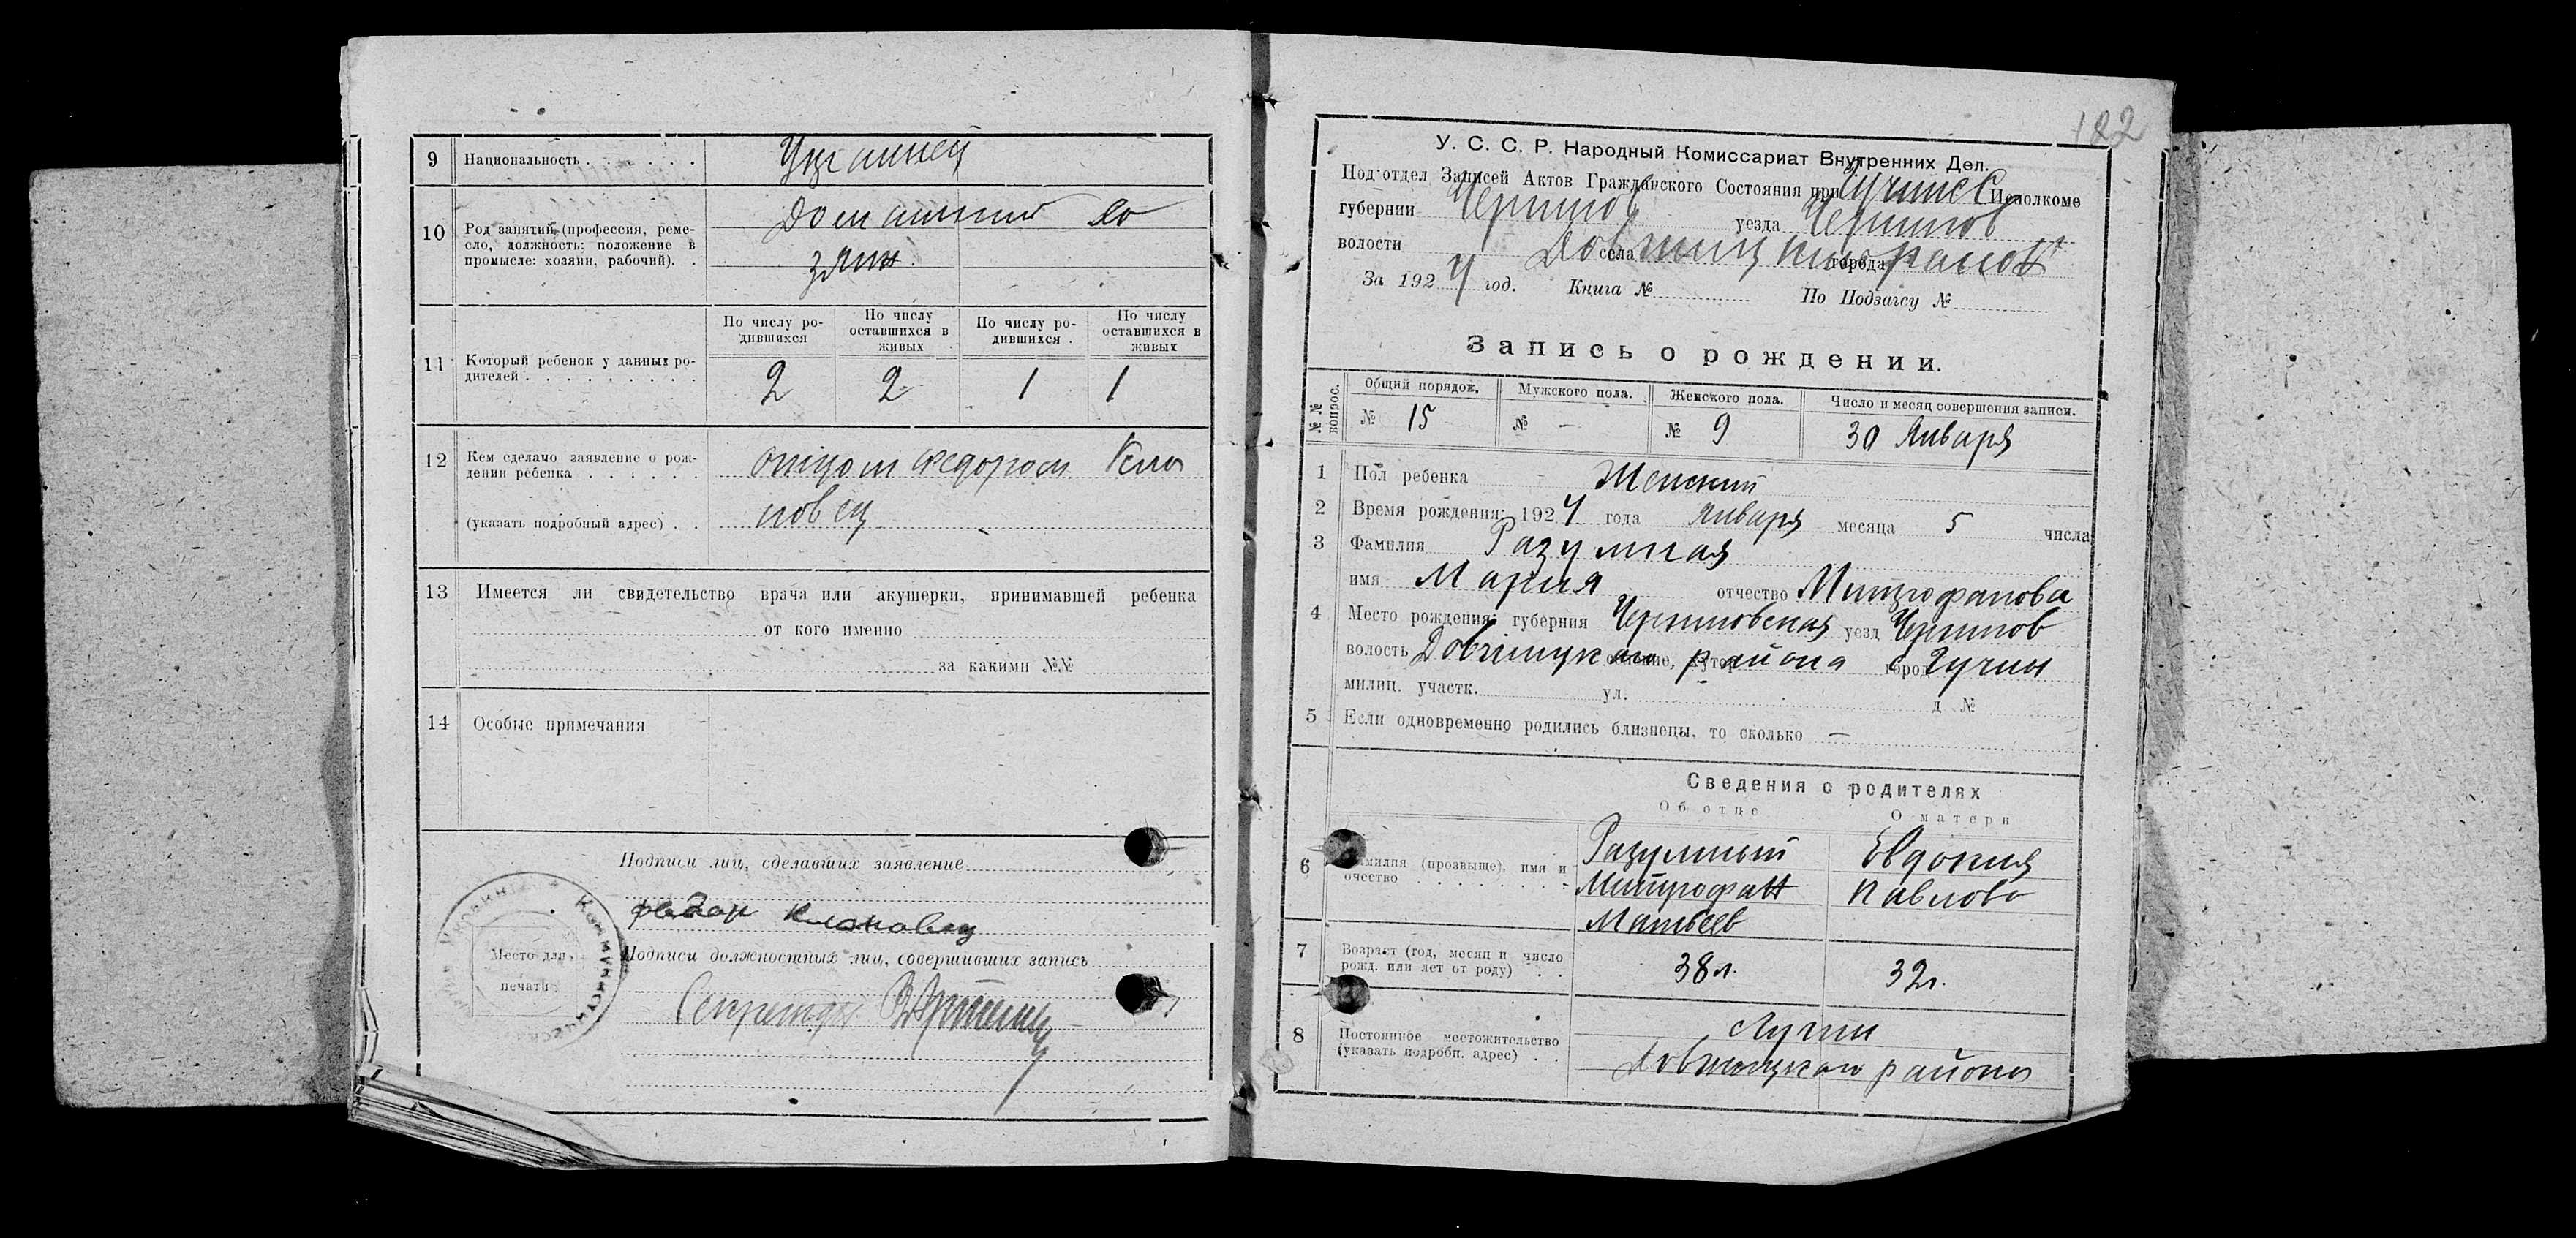 9 Национальность . . . . . . Украинец
10 Род занятий (профессия, реме-
сло, должность: положение в
промысле: хозяин, рабочий). .
Домашний хо
зяин
11 Который ребенок у данных ро-
дителей . . . . . . . . .
По числу ро-
дившихся
По числу
оставшихся в
живых
По числу ро-
дившихся .
По числу
оставшихся в
живых
2 2 1 1
12 Кем сделано заявление о рож-
дении ребенка . . . . . .
отцом Федором Кло
(указать подробный адрес) . .
новец
13 Имеется ли свидетельство врача или акушерки, принимавшей ребенка
от кого именно
за какими №№
14 Особые примечания
Подписи лиц, сделавших заявление
федор клоновец
Подписи должностных лиц, совершивших запись
Место для
печати
Секретарь
182
У. С. С. Р. Народный Комиссариат Внутренних Дел.
Под'отдел Записей Актов Гражданского Состояния при Исполкоме
губернии Чернигов уезда Чернигов
волости села города
За 1924 год. Книга № По Подзагсу №
Запись о рождении.
№№ вопрос.
Общий порядок. Мужского пола. Женского пола. Число и месяц совершения записи.
№ 15 № - № 9 30 Января
1 Пол ребенка Женский
2 Время рождения: 1924 года Января месяца 5 числа
3 Фамилия Разумная
имя Мария отчество Митрофанова
4 Место рождения: губерния Черниговская уезд Чернигов
волость района город
милиц. участк. ул. д №
5 Если одновременно родились близнецы, то сколько —
Сведения о родителях
Об отце О матери
6 Фамилия (прозвыще), имя и
очество . . . . . . . . .
Разумный
Митрофан
Матвеев
Евдокия
Павлова
7 Возраст (год, месяц и число
рожд. или лет от роду) . .
38 л. 32 г.
8 Постоянное местожительство
(указать подробн. адрес) . .
района